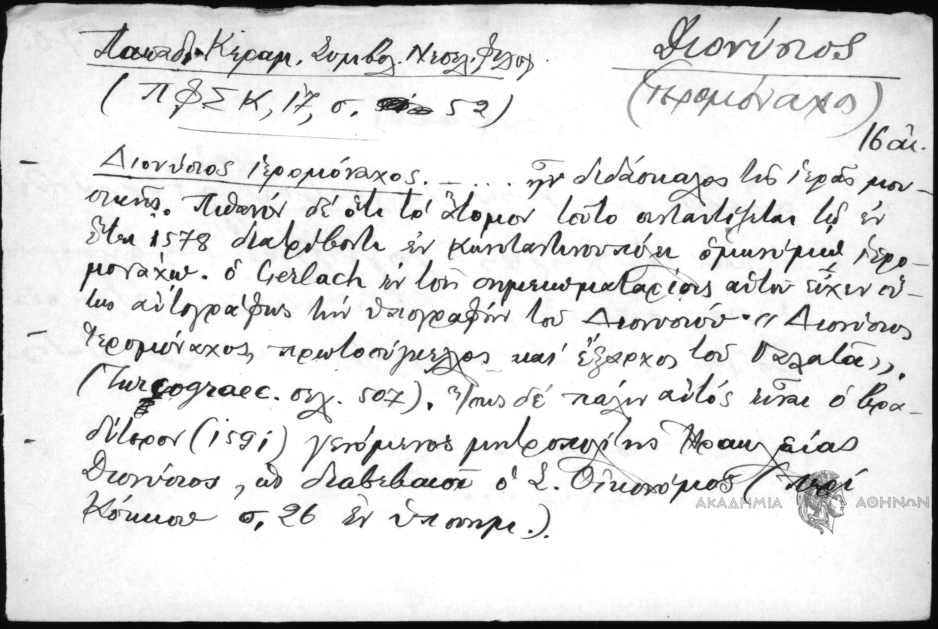 Παπαδ. Κεραμ. Συμβολ. Νεοελ. Φιλολ.
Διονύσιος
(ΠΦΣΚ, 17, σ. 52)
(ἱερομόναχος)
16 αἰ.
Διονύσιος ἱερομόναχος. - ... ἦν διδάσκαλος τῆς ἱερᾶς μου-
σικῆς. Πιθανόν δέ ὅτι τό ἄτομον τοῦτο ταυτίζεται τῷ ἐν
ἔτει 1578 διατρίβοντι ἐν Κωνσταντινουπόλει ὁμωνύμῳ ἱερο-
μονάχῳ. ὁ Gerlach ἐν τοῖς σημειωματαρίοις αὐτοῦ εἶχεν οὕ-
τως αὐτογράφως τήν ὑπογραφήν τοῦ Διονυσίου· "Διονύσιος
ἱερομόναχος, πρωτοσύγκελλος καί ἔξαρχος τοῦ Γαλατᾶ".
(Turcograec. σελ. 507). Ἴσως δέ πάλιν αὐτός εἶναι ὁ βρα-
δύτερον (1591) γενόμενος μητροπολίτης Ἡρακλείας
Διονύσιος, ὡς διαβεβαιοῖ ὁ Σ. Οἰκονόμος (περί
Κόκκου σ. 26 ἐν ὑποσημ.).
ΑΚΑΔΗΜΙΑ ΑΘΗΝΩΝ